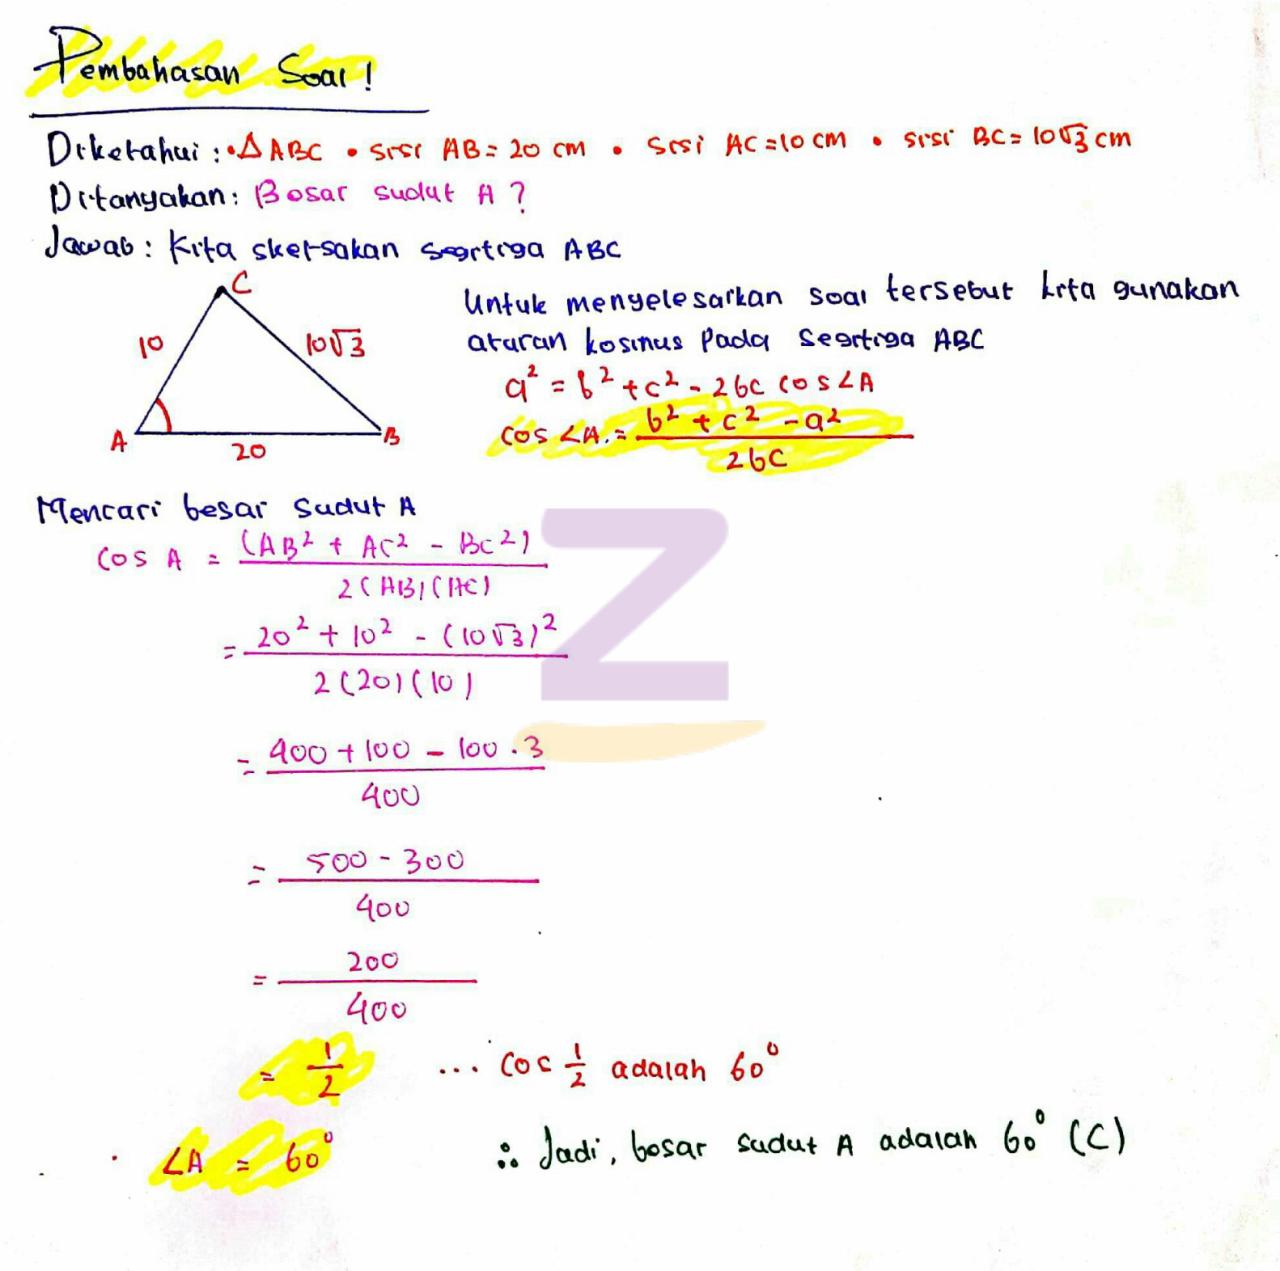 Pembahasan Soal !
Diketahui : • △ ABC • sisi AB = 20 cm • sisi AC = 10 cm • sisi BC = 10√3 cm
Ditanyakan : Besar sudut A ?
Jawab : Kita sketsakan segitiga ABC
C
10
10√3
A
20
B
Untuk menyelesaikan soal tersebut kita gunakan
aturan kosinus pada segitiga ABC
a² = b² + c² - 2bc cos∠A
cos ∠A. = b² + c² - a² / 2bc
Mencari besar sudut A
cos A = (AB² + AC² - BC²) / 2(AB)(AC)
= 20² + 10² - (10√3)² / 2(20)(10)
= 400 + 100 - 100 . 3 / 400
= 500 - 300 / 400
= 200 / 400
= 1/2 ... cos 1/2 adalah 60°
∠A = 60°
∴ Jadi, besar sudut A adalah 60° (C)
Z